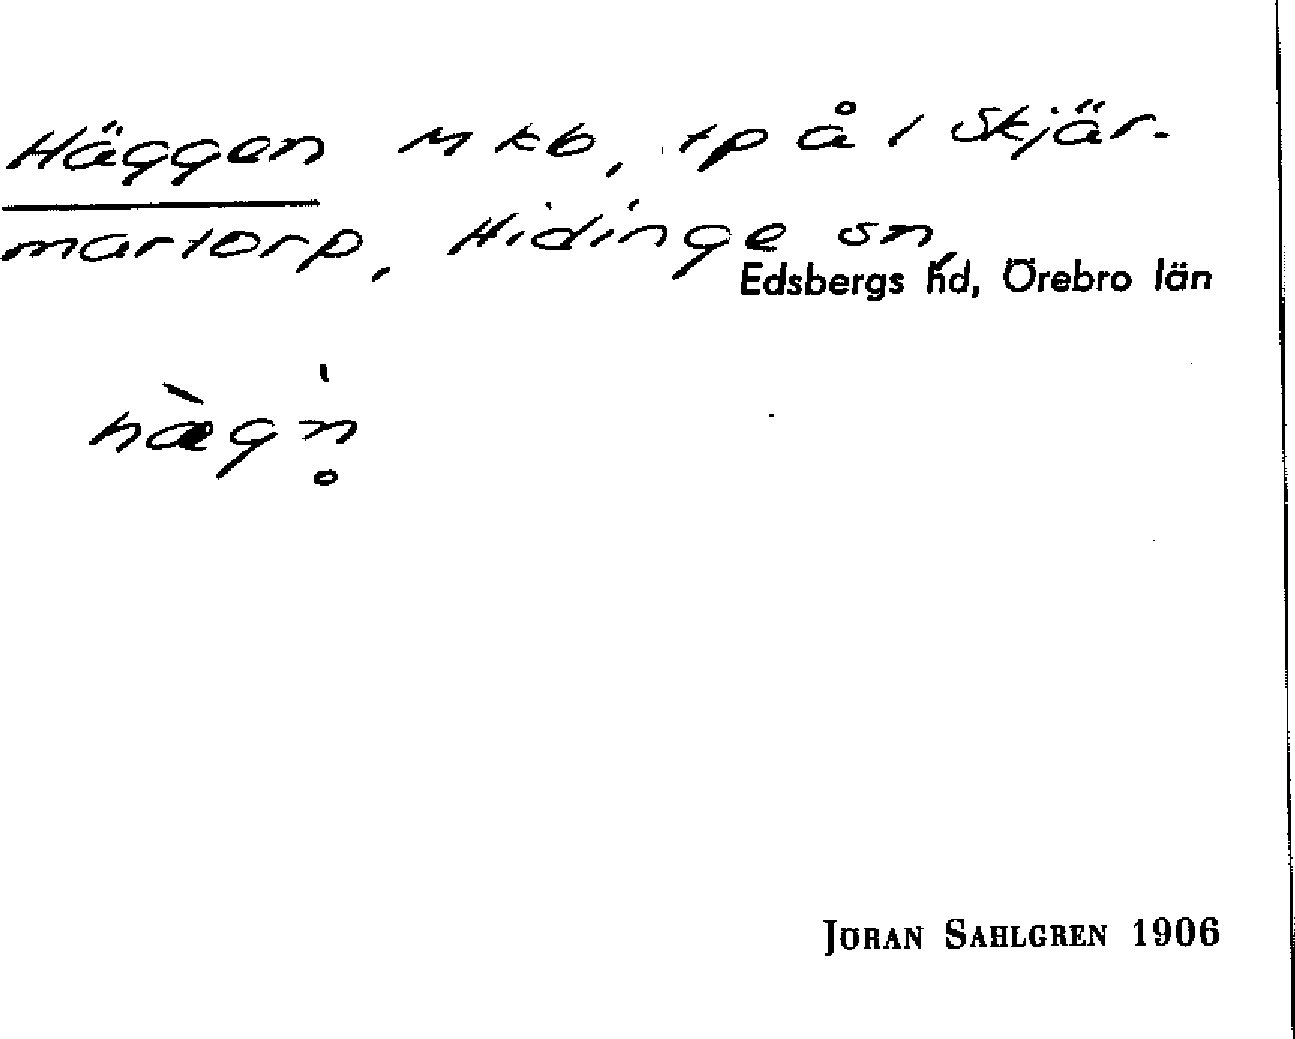 Häggen M kb, tp å 1 Skjär-
martorp, Hidinge sn,
Edsbergs hd, Örebro län
hæ̀gǹ̥
JÖRAN SAHLGREN 1906